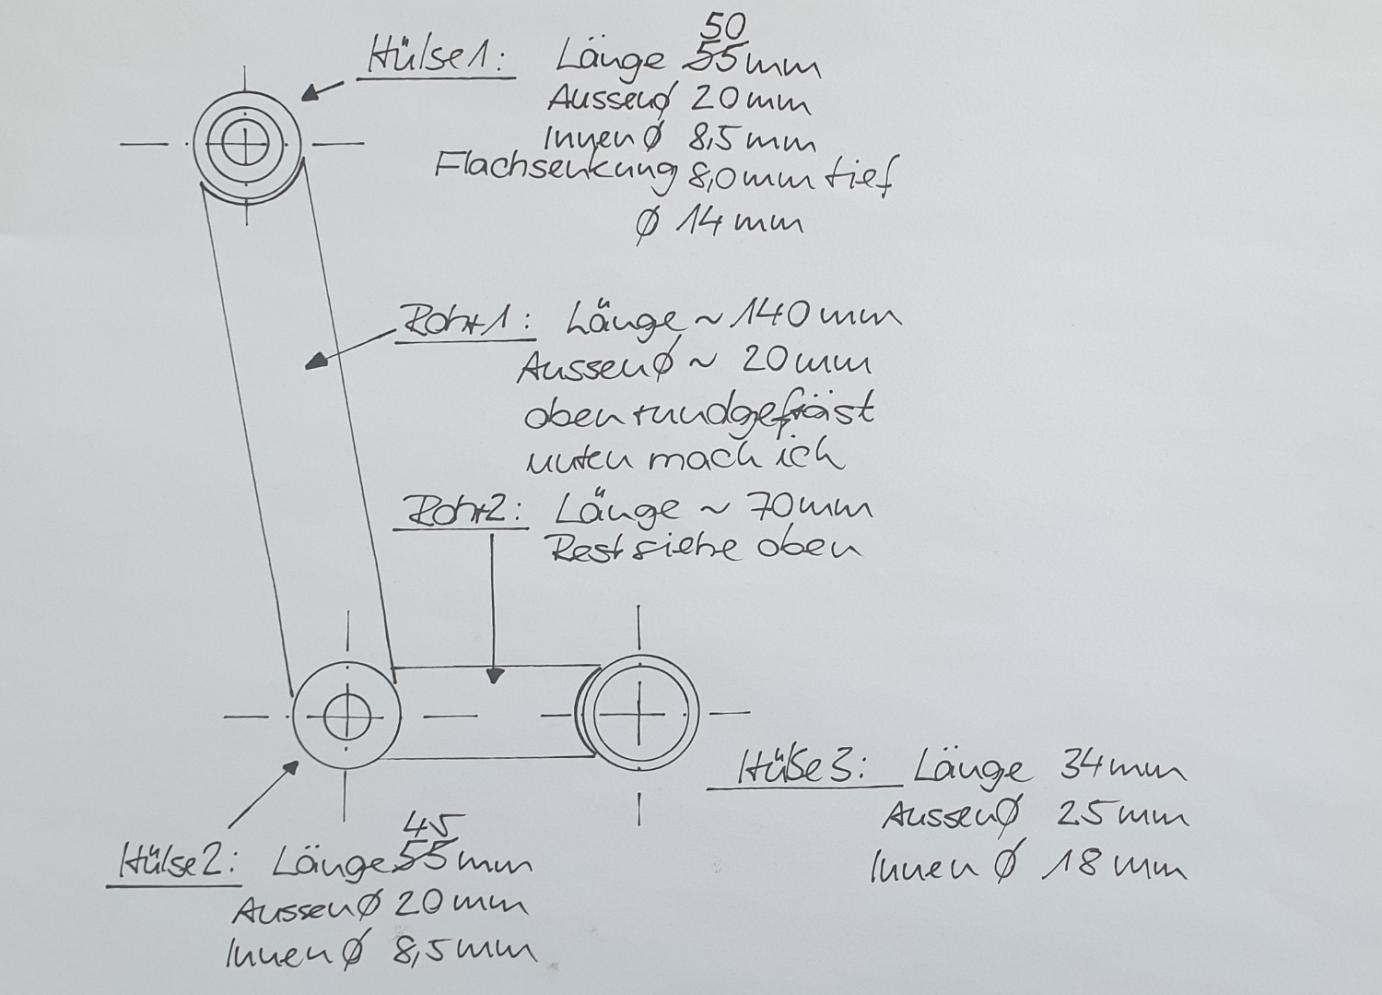 50
Hülse1: Länge 55mm
Aussenø 20mm
Innen Ø 8,5mm
Flachsenkung 8,0mm tief
Ø 14mm
Rohr1: Länge ~ 140mm
AussenØ ~ 20mm
oben rundgefräst
unten mach ich
Rohr2: Länge ~ 70mm
Rest siehe oben
Hülse3: Länge 34mm
AussenØ 25mm
Innen Ø 18mm
45
Hülse2: Länge 55mm
AussenØ 20mm
Innen Ø 8,5mm